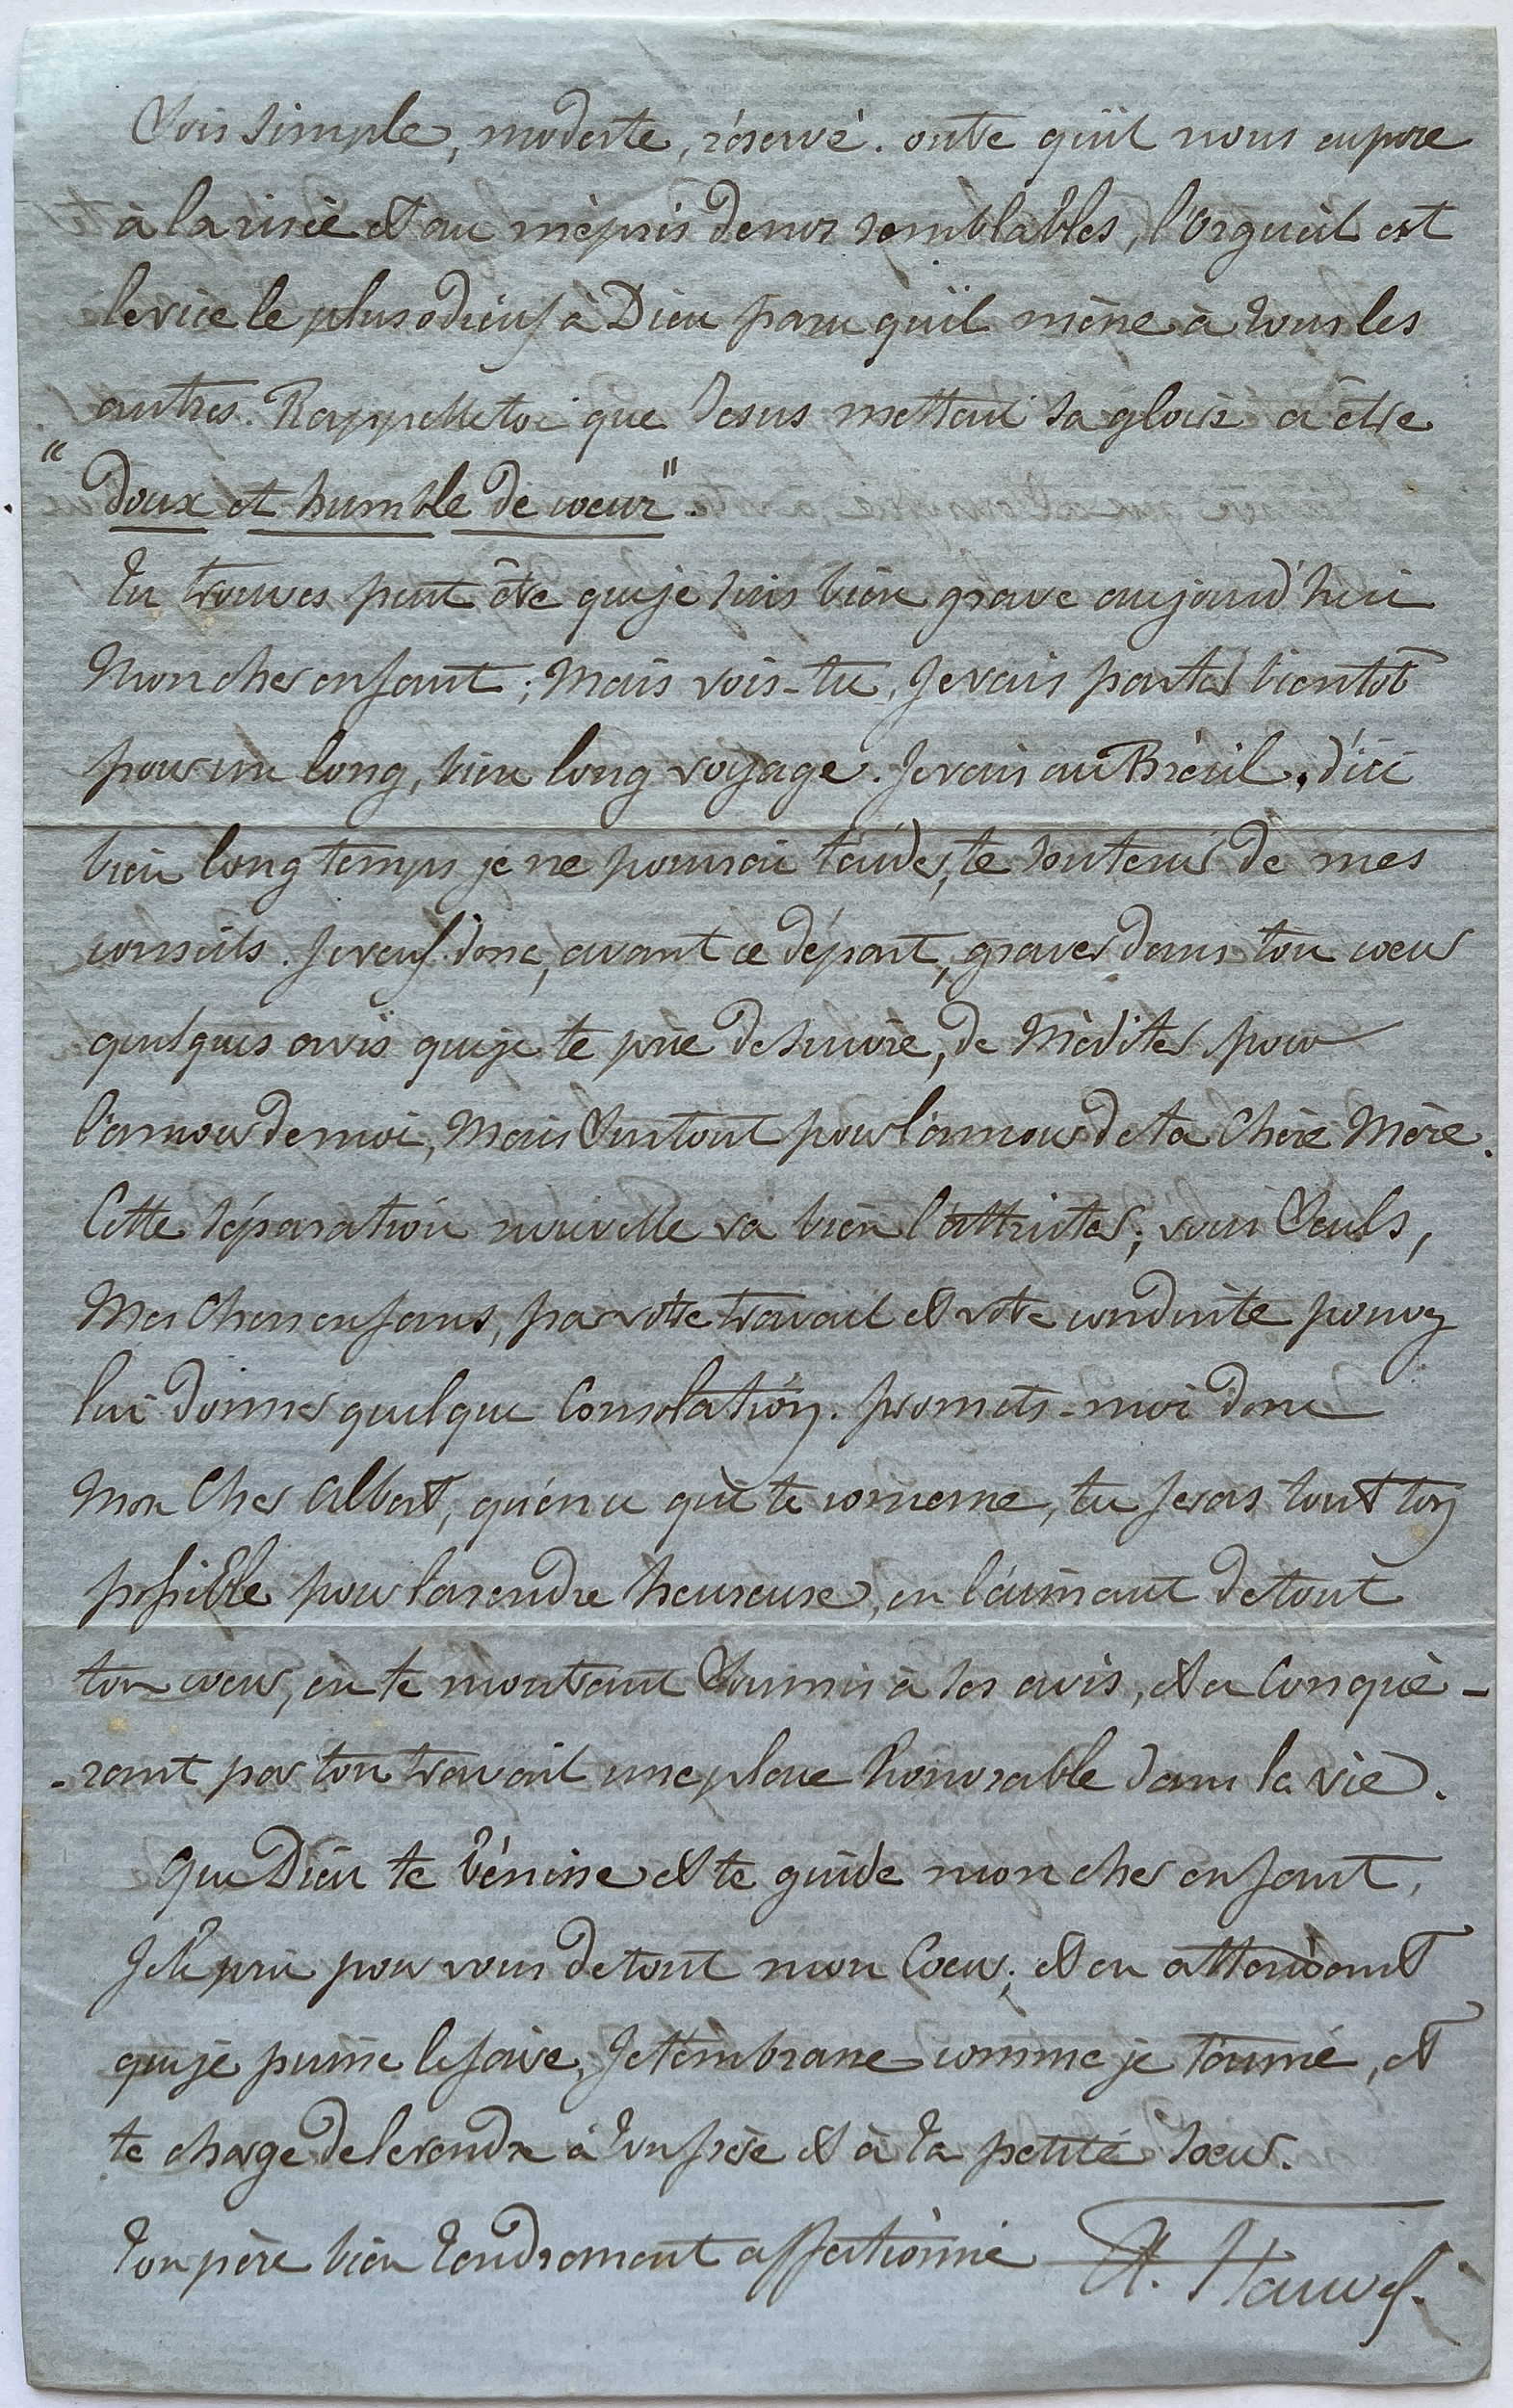 Sois simple, modeste, réservé. outre qu'il nous expose
à la risée et au mépris de nos semblables, l'Orgueil est
le vice le plus odieux à Dieu parce qu'il mène à tous les
autres. Rappelle toi que Jesus mettait sa gloire à être
"doux et humble de coeur".
Tu trouves peut être que je suis bien grave aujourd'hui
Mon cher enfant ; Mais vois-tu, Je vais partir bientôt
pour un long, bien long voyage. Je vais au Brésil. d'ici
bien long temps je ne pourrai t'aider, te soutenir de mes
conseils. Je veux donc, avant ce départ, graver dans ton coeur
quelques avis que je te prie de suivre, de Méditer pour
l'amour de moi, Mais Surtout pour l'amour de ta Chère Mère.
Cette séparation nouvelle va bien l'attrister ; vous Seuls,
Mes Chers enfans, par votre travail et votre conduite pouvez
lui donner quelque Consolation. promets-moi donc
Mon Cher Albert, qu'en ce qui te concerne, tu feras tout ton
possible pour la rendre heureuse, en l'aimant de tout
ton coeur, en te montrant Soumis à ses avis, et en Conqué-
-rant par ton travail une place honorable dans la vie.
Que Dieu te bénisse et te guide mon cher enfant,
Je le prie pour vous de tout mon Coeur ; et en attendant
que je puisse le faire, Je t'embrasse comme je t'aime, et
te charge de le rendre à ton frère et à ta petite soeur.
Ton père bien tendrement affectionné